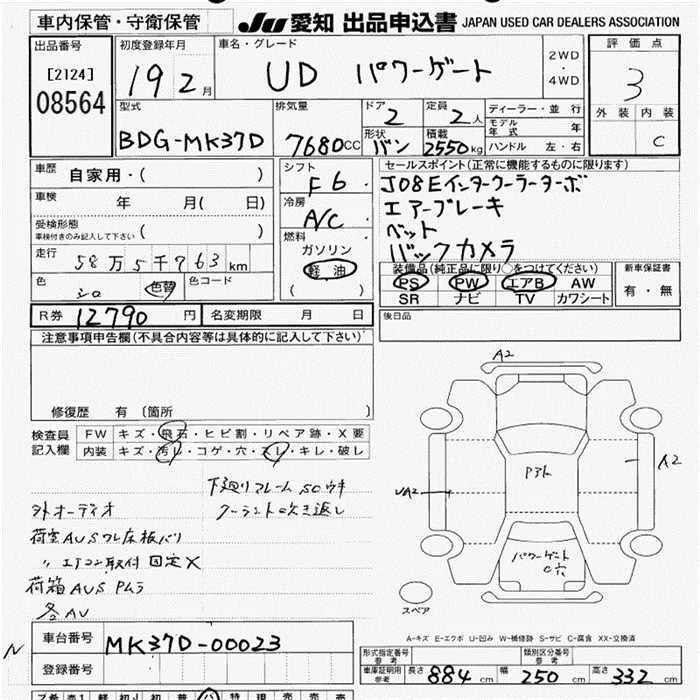 車内保管・守衛保管
JU 愛知 出品申込書 JAPAN USED CAR DEALERS ASSOCIATION
出品番号
[2124]
08564
初度登録年月
19 2 月
車名・グレード
UD パワーゲート
2WD
・
4WD
評価点
3
外装 内装
C
型式
BDG-MK37D
排気量
7680 CC
ドア
2
定員
2 人
形状
バン
積載
2550 kg
ディーラー・並行
モデル年式 年
ハンドル 左・右
車歴
自家用・( )
車検
年 月( 日)
受検形態
車検付きのみ記入して下さい ( )
走行
58万5千763 km
色
シロ
色替
色コード
シフト
F6
冷房
A/C
燃料
ガソリン
軽油
( )
セールスポイント(正常に機能するものに限ります)
J08Eインタークーラーターボ
エアーブレーキ
ベット
バックカメラ
装備品(純正品に限り○をつけてください)
PS PW エアB AW
SR ナビ TV カワシート
新車保証書
有・無
R券 12790 円
名変期限 月 日
後日品
注意事項申告欄(不具合内容等は具体的に記入して下さい)
修復歴 有〔箇所 〕
検査員記入欄
FW キズ・飛石・ヒビ割・リペア跡・X要
内装 キズ・汚レ・コゲ・穴・スレ・キレ・破し
下廻りフレームSOウキ
外オーディオ
クーラント吹き返し
荷室AUSワレ床板バリ
〃エアコン取付 固定X
荷箱AUS Pムラ
各AU
A2
A2
UA2
Pアト
パワーゲート
C穴
スペア
A-キズ E-エクボ U-凹み W-補修跡 S-サビ C-腐食 XX-交換済
N
車台番号 MK37D-00023
登録番号
形式指定番号
参考
類別区分番号
参考
車庫証明用
参考
長さ 884 cm 幅 250 cm 高さ 332 cm